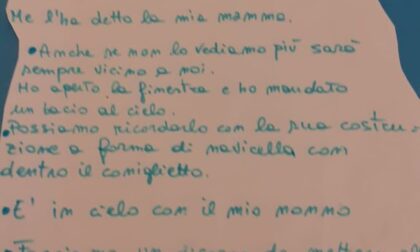 Me l'ha detto la mia mamma.
• Anche se non lo vediamo più sarà
sempre vicino a noi.
Ho aperto la finestra e ho mandato
un bacio al cielo.
• Possiamo ricordarlo con la sua costru-
zione a forma di navicella con
dentro il coniglietto.
• E' in cielo con il mio nonno
• Facciamo un disegno da mettere